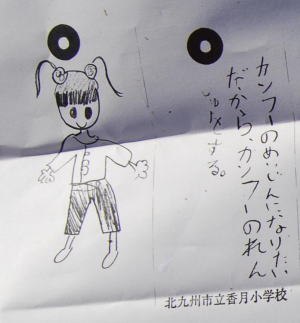 カンフーのめいじんになりたい
だから、カンフーのれん
しゅうをする。
北九州市立香月小学校